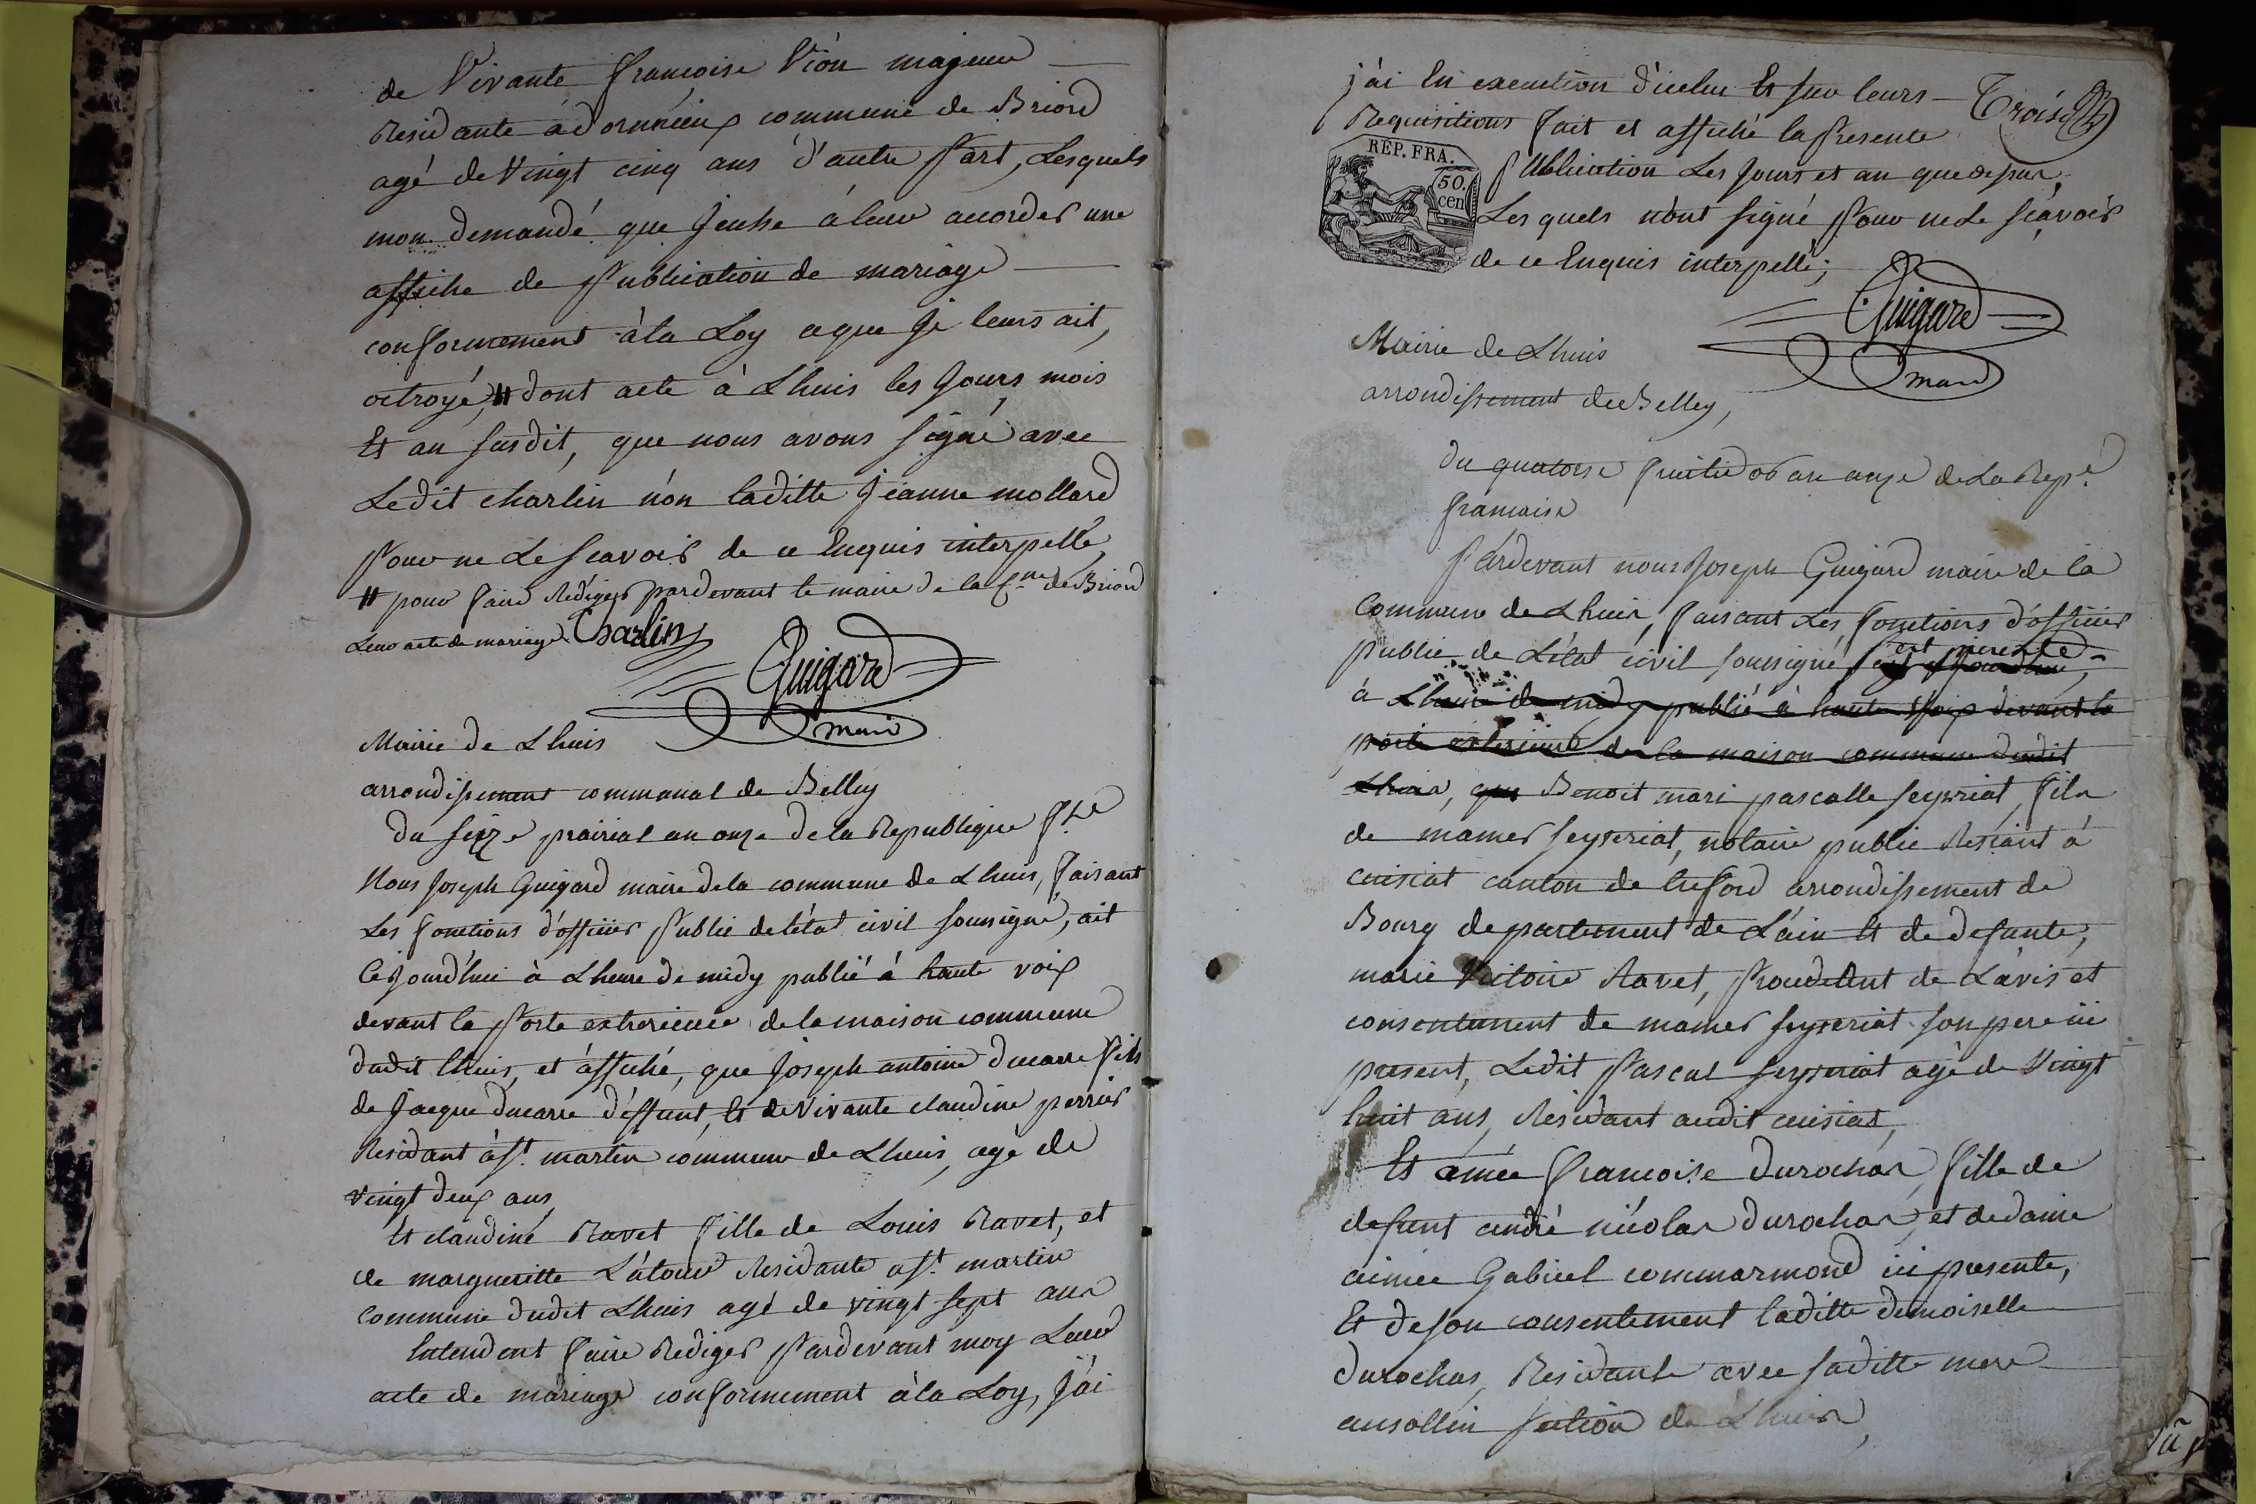 de Vivante françoise Vión majeure
Residante à dornieux commune de Briord
agé de Vingt cinq ans d'autre Part, Lesquels
mon demandé que Jeusse á leur accorder une
affiche de Publication de mariage
conformement à la Loy ceque Je leurs ait,
octroyé, # dont acte à Lhuis les Jours, mois
Et an susdit, que nous avons signé avec
Ledit charlin nón laditte Jeanne mollard
Pour ne Le scavoir de ce Enquis interpellé,
# pour faire Rédiger pardevant le maire de la Cne de Briord
Leur acte de mariage. Charlin
Guigard
maire
Mairie de Lhuis
arrondissement communal de Belley
Du seize prairial an onze de la Republique fse
Nous Joseph Guigard maire de la commune de Lhuis, faisant
Les fonctions d'officier Public de l'état civil soussigné, ait
Cejourd'hui à Lheure de midy publié á haute voix
devant la Porte exterieure de la maison commune
dudit lhuis, et affiché, que Joseph antoine ducarre fils
de Jacque ducarre déffunt, Et de Vivante claudine perrier
Residant à st. martin commune de Lhuis, agé de
vingt deux ans,
Et claudine Ravet fille de Louis Ravet, et
de margueritte Látour Residante a st. martin
commune dudit Lhuis agé de vingt sept ans
Entendent faire Rediger Pardevant moy Leur
acte de mariage conformement à la Loy, J'ái
j'ái En execution d'icelui Et sur leurs
Trois
Requisitions fait et affiché la Presente
REP. FRA.
50.
cen
Publication Les Jours et an que dessus,
Les quels n'ont signé Pour ne Le sçavoir
de ce Enquis interpellé;
Guigard
maire
Mairie de Lhuis
arrondissement de Belley,
Du quatorse fructidor an onze de La Repe.
françaisse
Pardevant nous Joseph Guigard maire de la
Commune de Lhuis, faisant Les fonctions d'officier
public de L'état civil soussigné, s'est présenté
à Lheure de midy publié à haute Voix devant la
porte exterieure de la maison commune dudit
Lhuis, que Benoit mari pascalle seyseriat, fils
de mamer seyseriat, notaire public Restant à
cuisiat canton de trefford arrondissement de
Bourg departement de L'áin Et de defunte,
marie Victoire Ravet, Proceddant de L'ávis et
consentement de mamer seyseriat son pere ici
present, Ledit Pascal seyseriat agé de Vingt
huit ans, Residant audit cuisiat,
Et amée francoise durochas, fille de
defunt andré nicolas durochas, et de dame
aimée Gabriel commarmond ici presente,
Et de son consentement laditte demoiselle
durochas, Residante avec saditte mere
ansollin section de Lhuis,